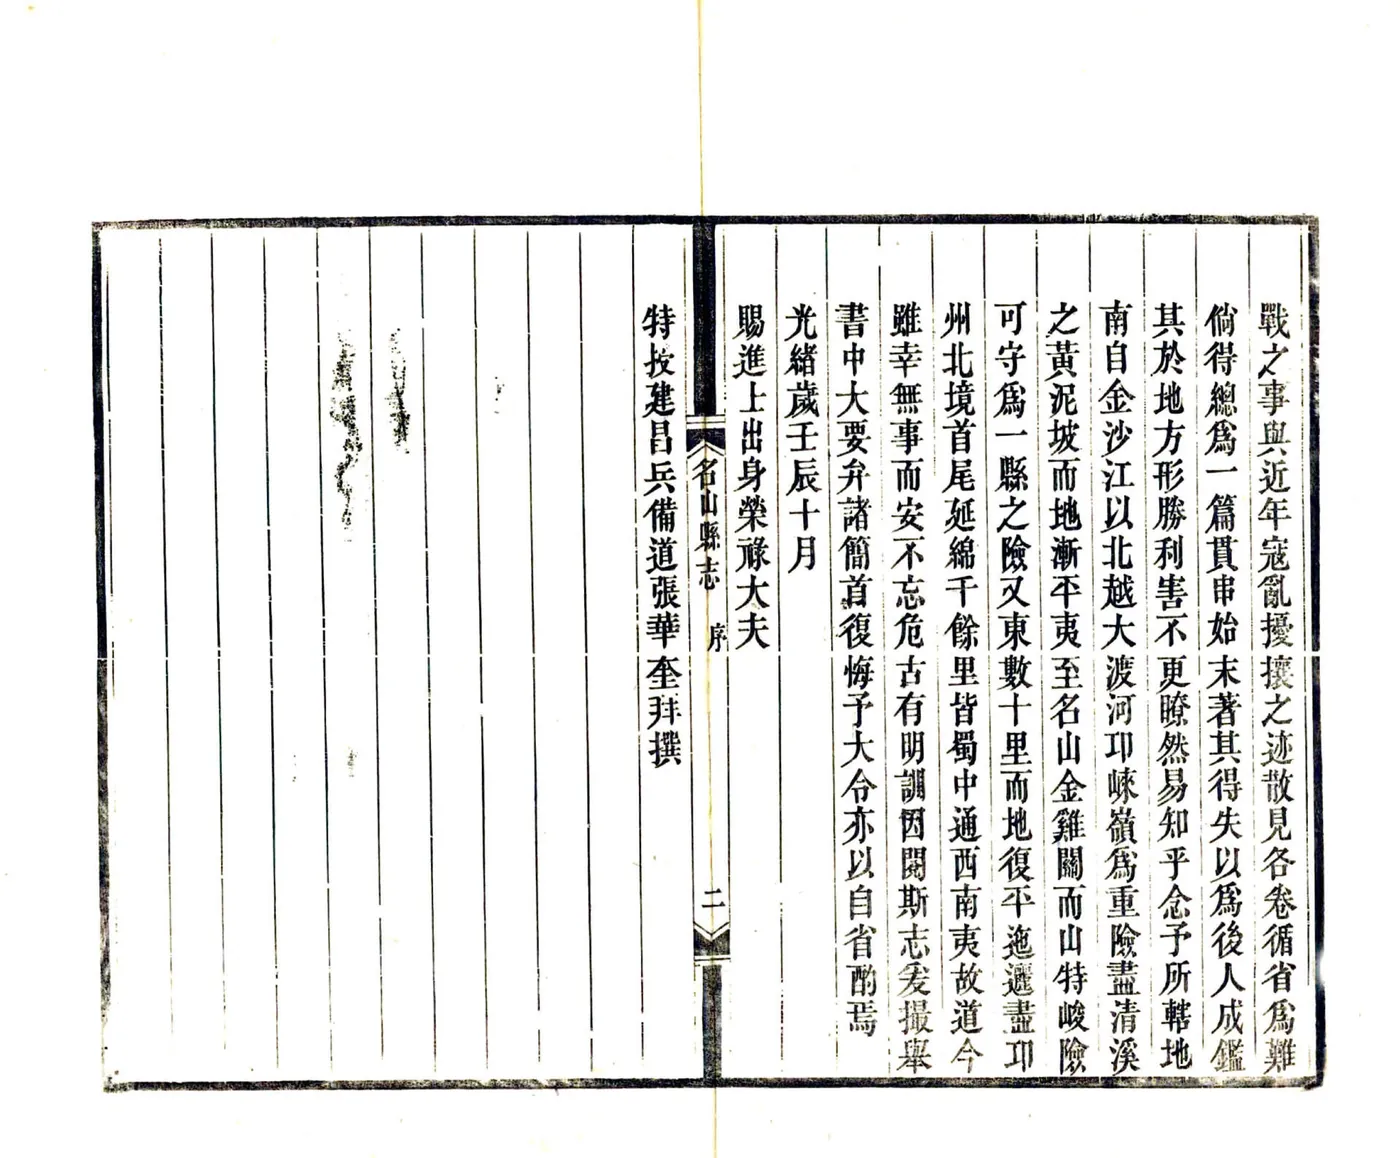 戰之事與近年寇亂擾攘之迹散見各卷循省爲難
倘得總爲一篇貫串始末著其得失以爲後人成鑑
其於地方形勝利害不更暸然易知乎念予所轄地
南自金沙江以北越大渡河卭崍嶺爲重險盡清溪
之黃泥坡而地漸平夷至名山金雞關而山特峻險
可守爲一縣之險又東數十里而地復平迤邐盡卭
州北境首尾延綿千餘里皆蜀中通西南夷故道今
雖幸無事而安不忘危古有明訓因閱斯志爰撮舉
書中大要弁諸簡首復悔予大令亦以自省酌焉
光緒歲壬辰十月
賜進士出身榮祿大夫
名山縣志 序 二
特授建昌兵備道張華奎拜撰